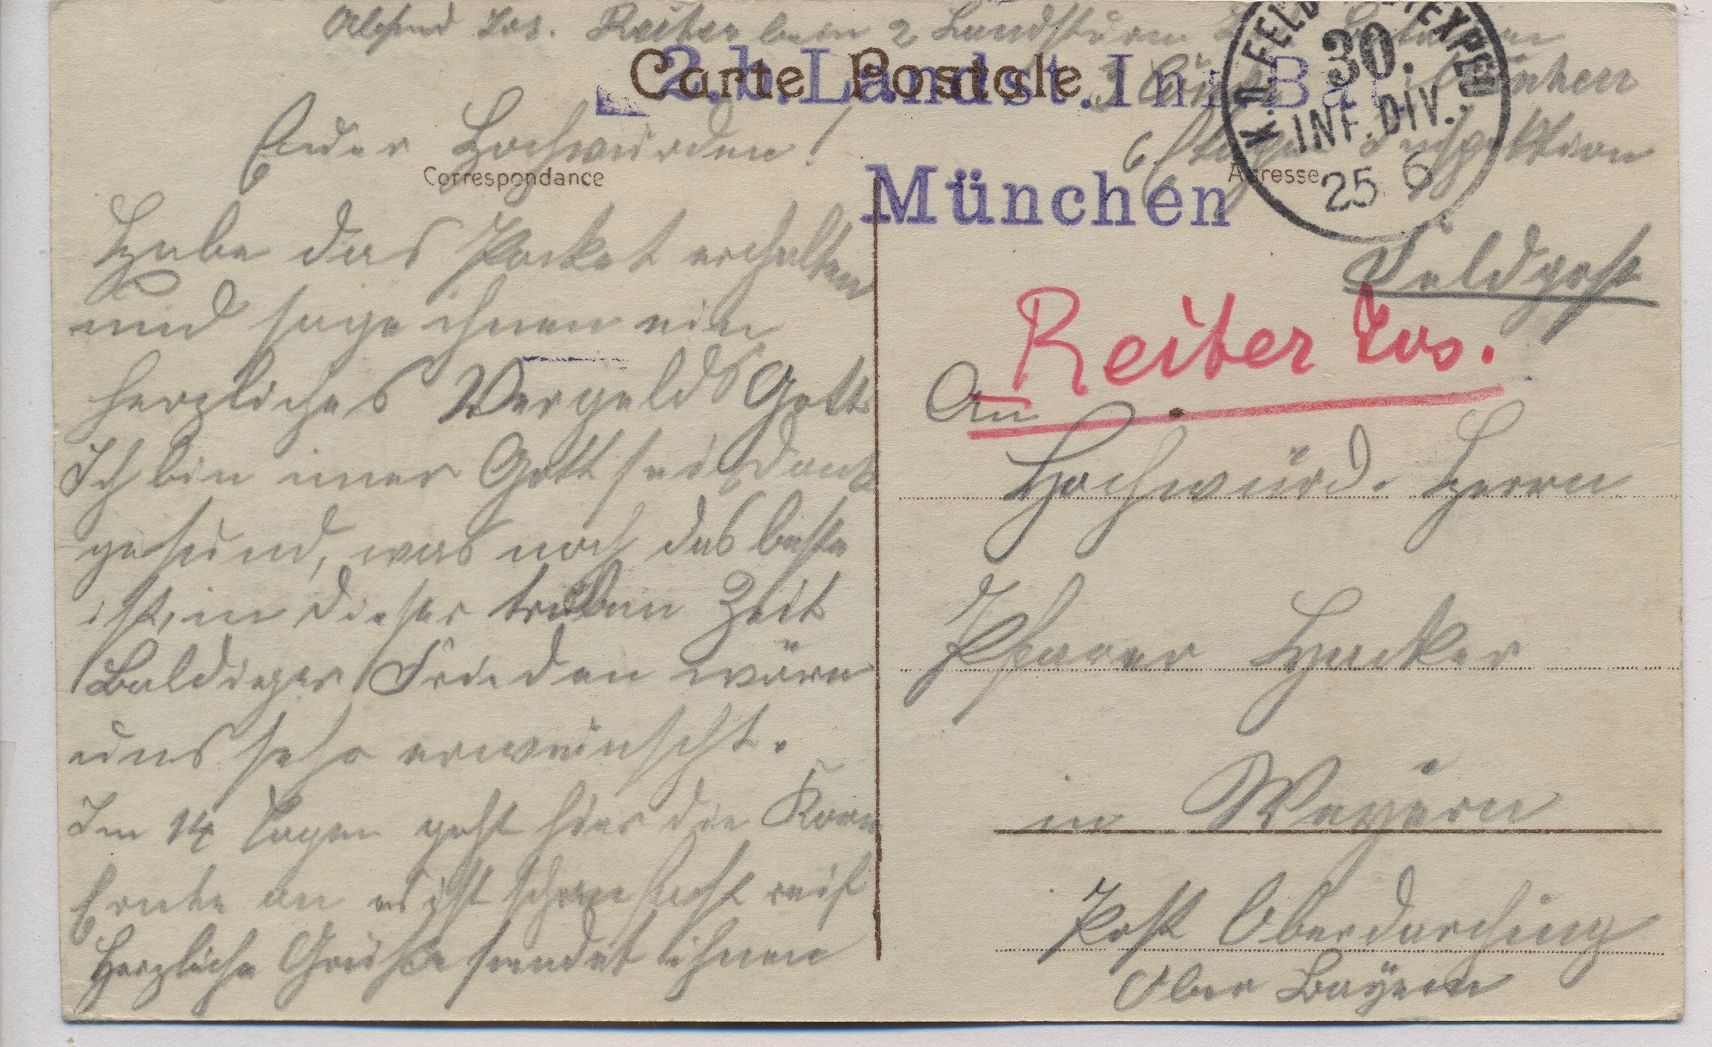 Absend Jos. Reiter beim 2 Landsturm
Carte Postale
2.b.Landst.Inf.Bat.
3 München
6 Etapen Inspektion
München
K.B.FELDPOSTEXPED.
30.
INF.DIV.
25 6
Correspondance
Adresse
Euer Hochwürden!
Habe das Packet erhalten
und sage ihnen ein
herzliches Vergelds Gott
Ich bin imer Gott sei Dank
gesund, was noch das beste
ist, in dieser trüben Zeit
Baldiger Frieden wäre
uns sehr erwünscht.
Im 14 Tagen geht hier die Korn
Ernte an es ist schon fast reif
Herzliche Grüße sendet ihnen
Feldpost
Reiter Jos.
An
Hochwürd. Herrn
Pfarrer
in Weyern
Post Oberdarching
Ober Bayern